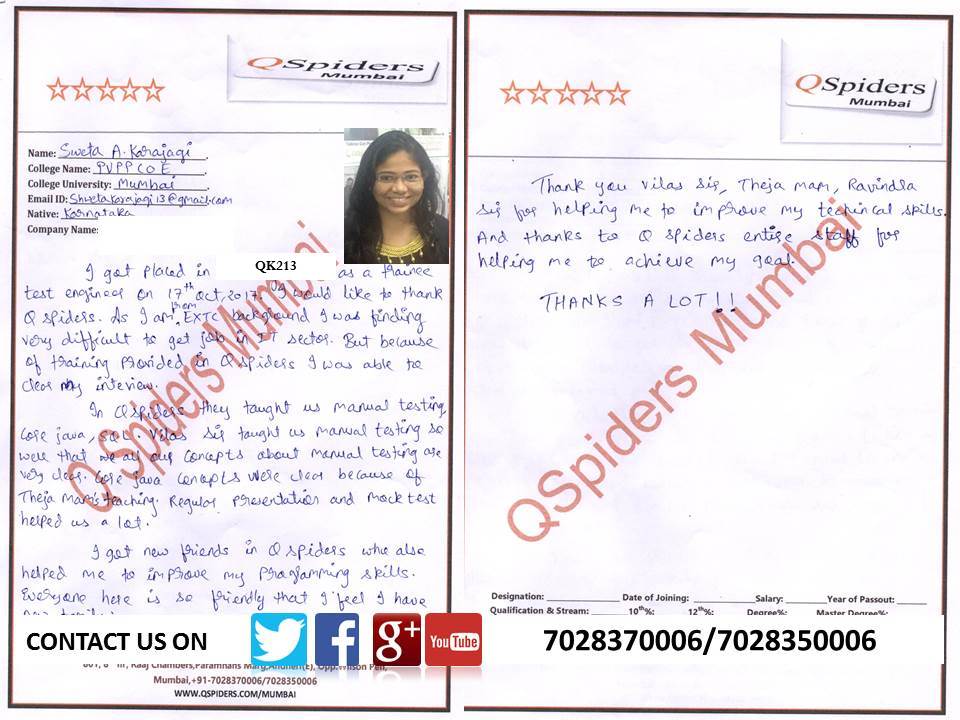 QSpiders
Mumbai
Name: Sweta A. Karajagi
College Name: PVPPCOE
College University: Mumbai
Email ID: Shwetakarajagi13@gmail.com
Native: Karnataka
Company Name:
I got placed in QK213 as a trainee
test engineer on 17th Oct, 2017. I would like to thank
Q spiders. As I am from EXTC background I was finding
very difficult to get job in IT sector. But because
of training provided in Q spiders I was able to
clear my interview.
In Qspiders they taught us manual testing,
core java, SQL. Vilas sir taught us manual testing so
well that we all our concepts about manual testing are
very clear. Core java concepts were clear because of
Theja Mam's teaching. Regular presentation and mock test
helped us a lot.
I got new friends in Q spiders who also
helped me to improve my programming skills.
Everyone here is so friendly that I feel I have
QSpiders Mumbai
CONTACT US ON
You Tube
601, 6th flr, Raaj Chambers, Paramhans Marg, Andheri(E), Opp. Wilson Pen,
Mumbai,+91-7028370006/7028350006
WWW.QSPIDERS.COM/MUMBAI
QSpiders
Mumbai
Thank you Vilas Sir, Theja mam, Ravindra
sir for helping me to improve my techincal skills.
And thanks to Q spiders entire staff for
helping me to achieve my goal.
THANKS A LOT!!
QSpiders Mumbai
Designation: Date of Joining: Salary: Year of Passout:
Qualification & Stream: 10th%: 12th%: Degree%: Master Degree%:
7028370006/7028350006